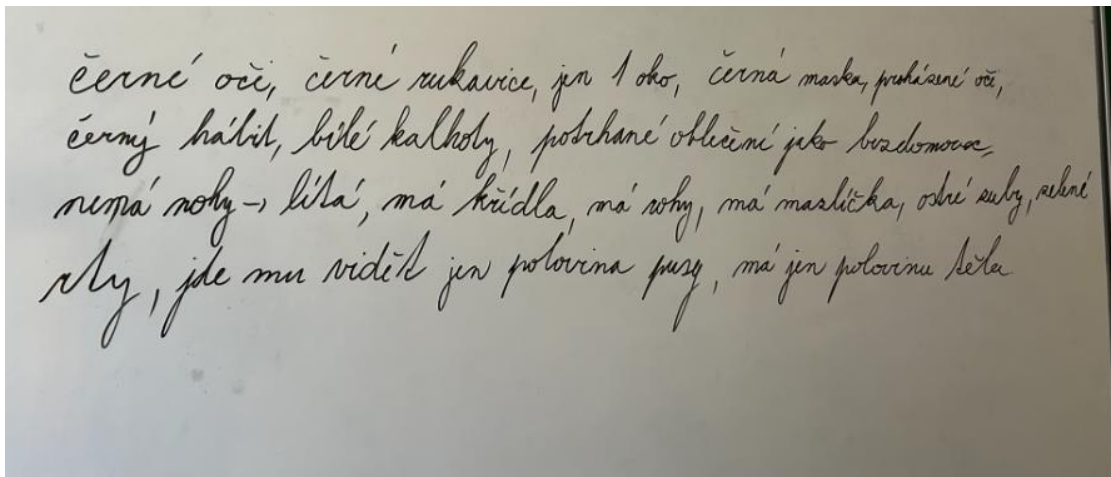 černé oči, černé rukavice, jen 1 oko, černá maska, proházené oči,
černý hábit, bílé kalhoty, potrhané oblečení jako bezdomovec,
nemá nohy → lítá, má křídla, má rohy, má mazlíčka, ostré zuby, zelené
rty, jde mu vidět jen polovina pusy, má jen polovinu těla